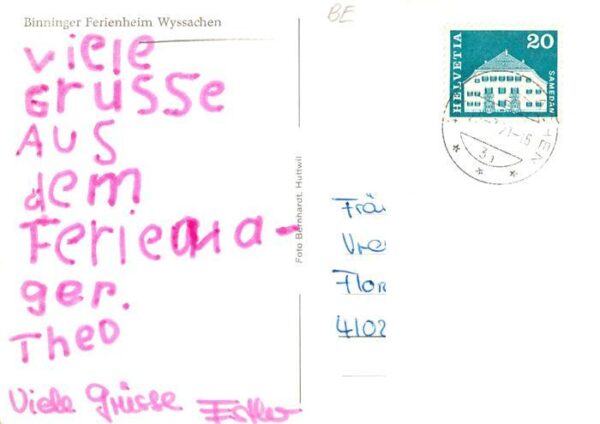 Binninger Ferienheim Wyssachen
BE
viele
Grüsse
Aus
dem
Feriena-
ger.
Theo
Viele Grüsse Esther
Foto Bernhardt, Huttwil
HELVETIA
20
SAMEDAN
Frä
Vre
Flor
4102